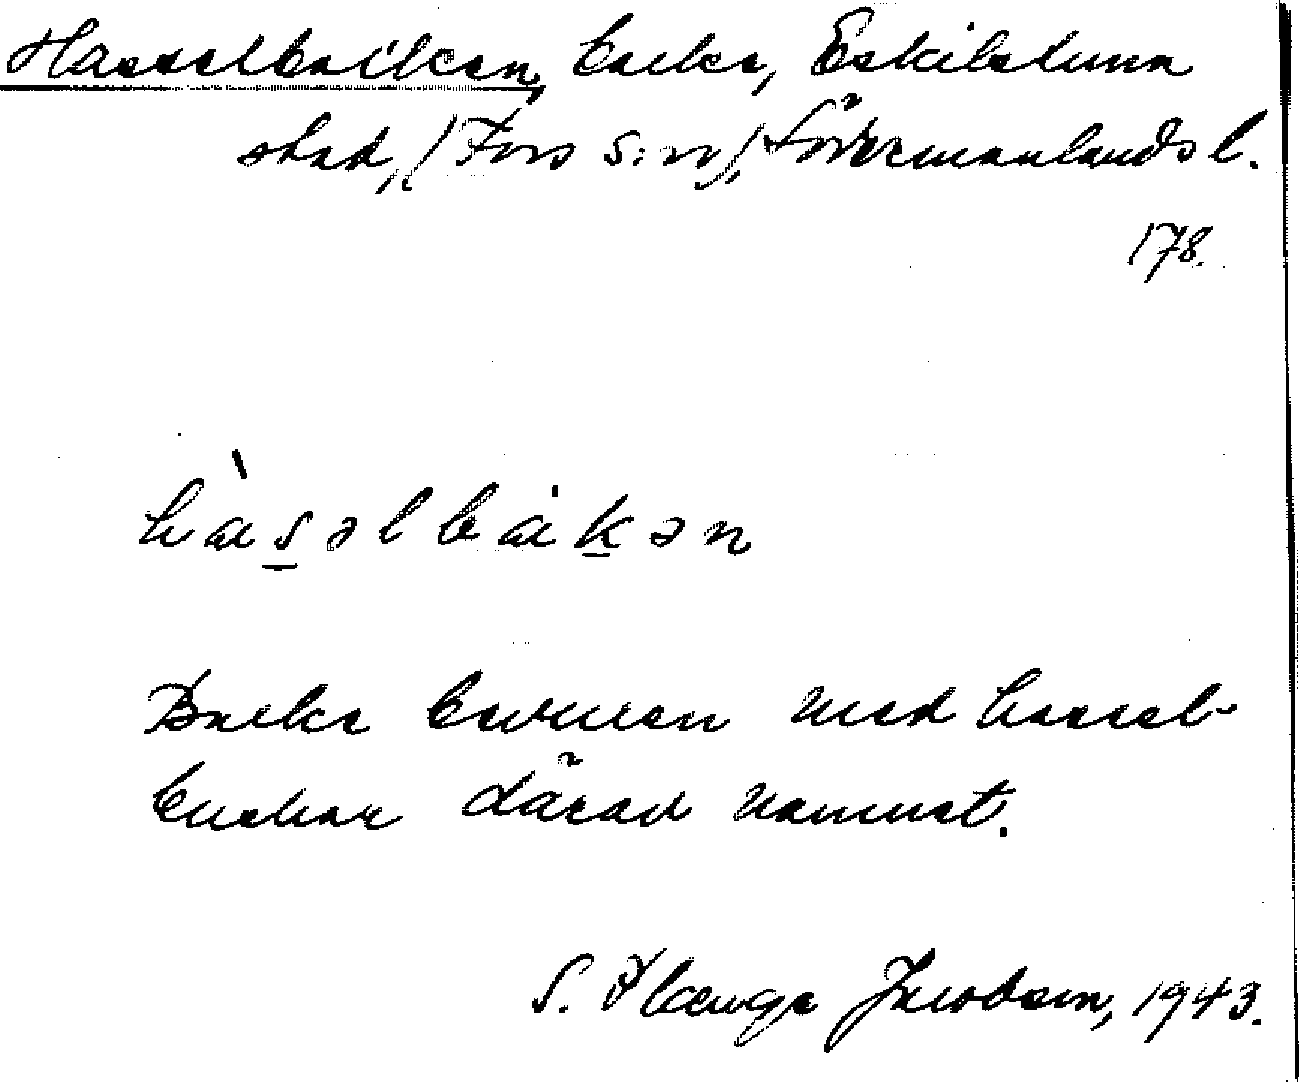 Hasselbacken, backe, Eskilstuna
stad, (Fors s:n), Södermanlands l.
178.
hàsəlbákən
Backe bevuxen med hassel-
buskar därav namnet.
S. Plaenge Jacobson, 1943.